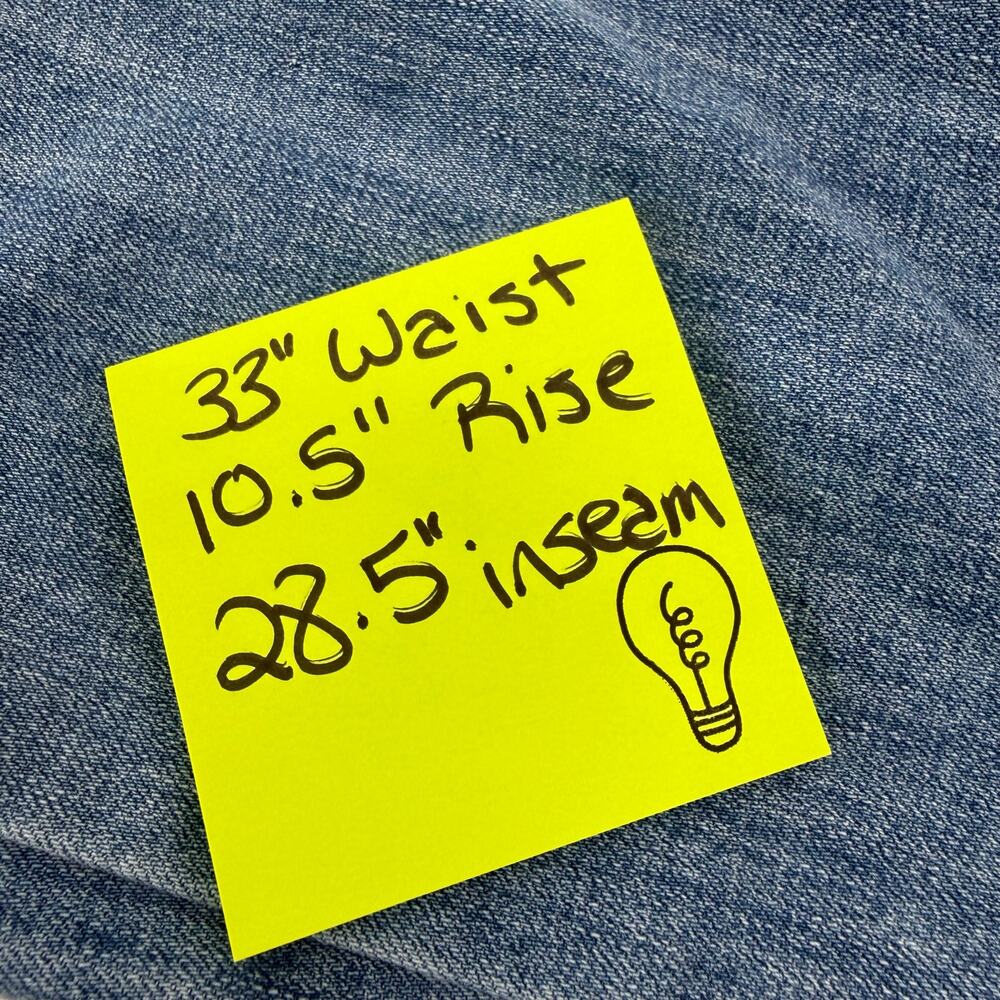 33" Waist
10.5" Rise
28.5" inseam